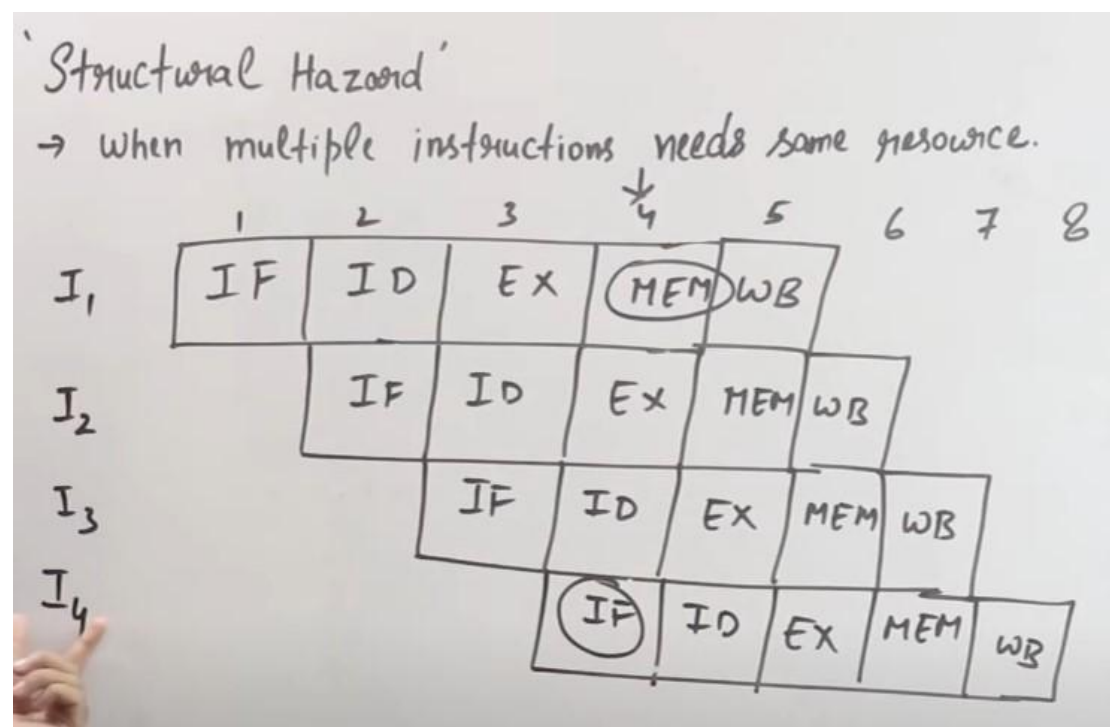 'Structural Hazard'
→ when multiple instructions needs same resource.
↓
1 2 3 4 5 6 7 8
I₁ IF ID EX MEM WB
I₂ IF ID EX MEM WB
I₃ IF ID EX MEM WB
I₄ IF ID EX MEM WB